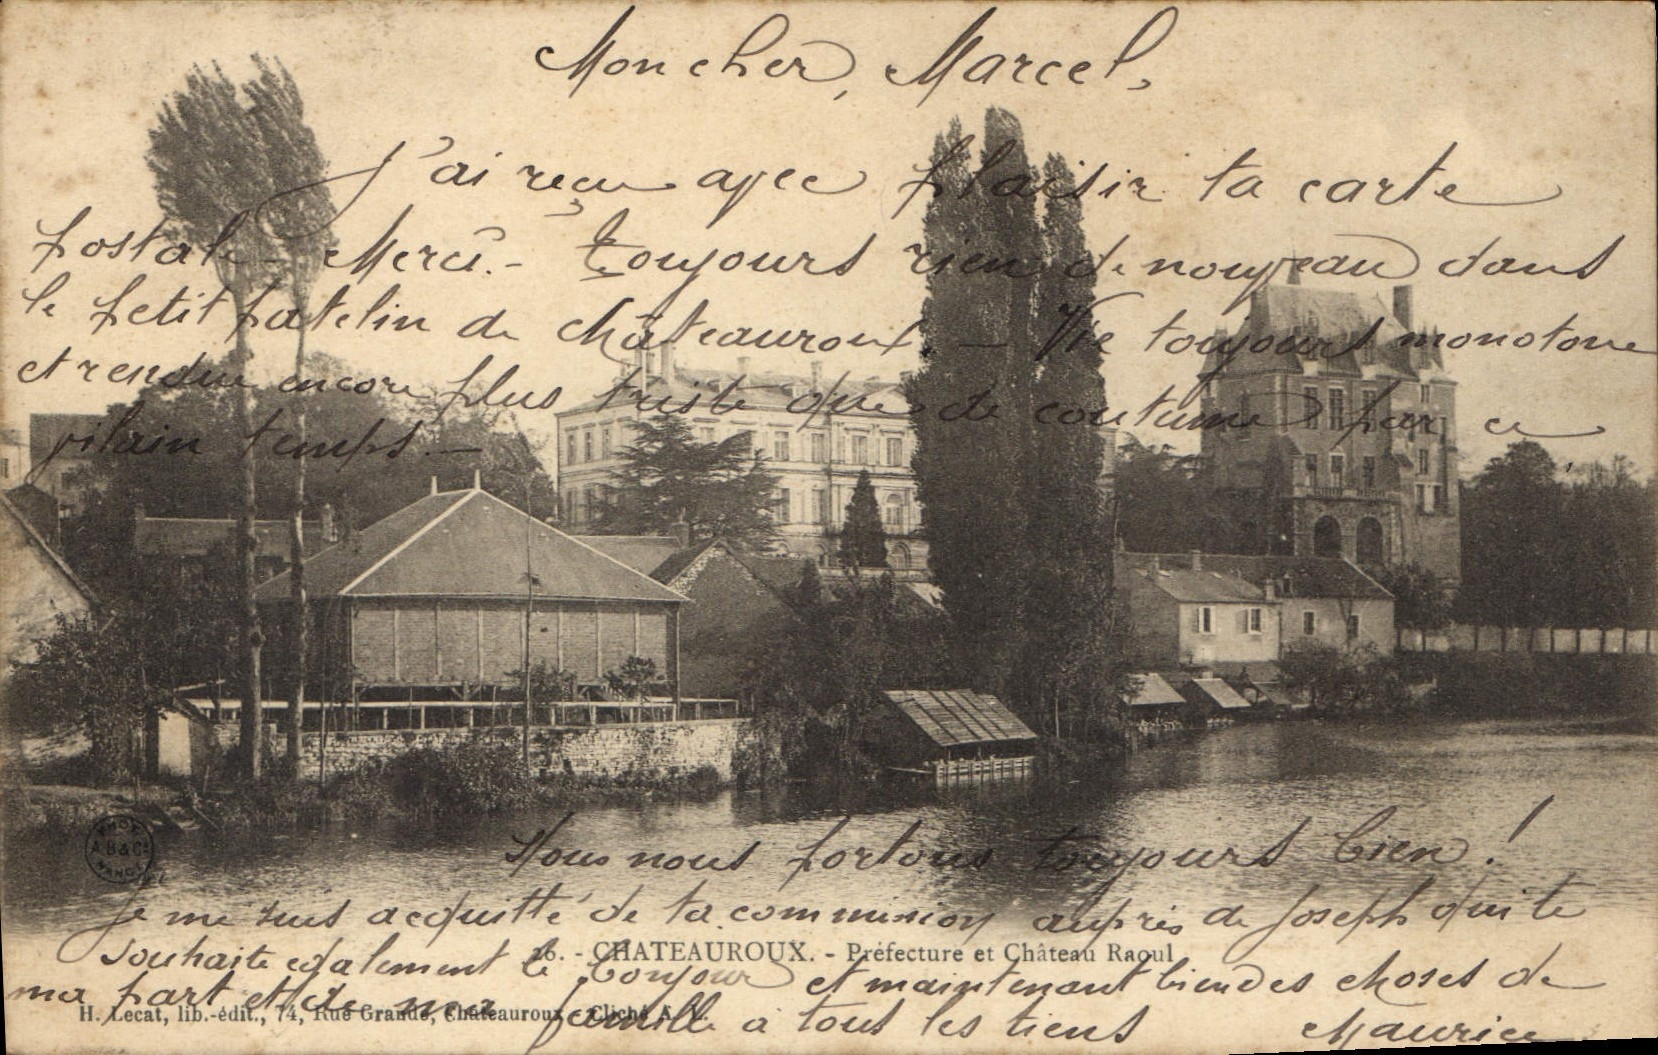 Mon cher Marcel,
J'ai reçu avec plaisir ta carte
postale - Merci. - Toujours rien de nouveau dans
le petit patelin de Châteauroux. - Vie toujours monotone
et rendue encore plus triste que de coutume par ce
vilain temps. -
Nous nous portons toujours bien !
Je me suis acquitté de ta commission auprès de Joseph qui te
souhaite également le bonjour et maintenant bien des choses de
26. - CHATEAUROUX. - Préfecture et Château Raoul
ma part et de ma famille à tous les tiens Maurice
H. Lecat, lib.-édit., 74, Rue Grande, Châteauroux - Cliché A.
PHOT
A.B & Cie
NANCY